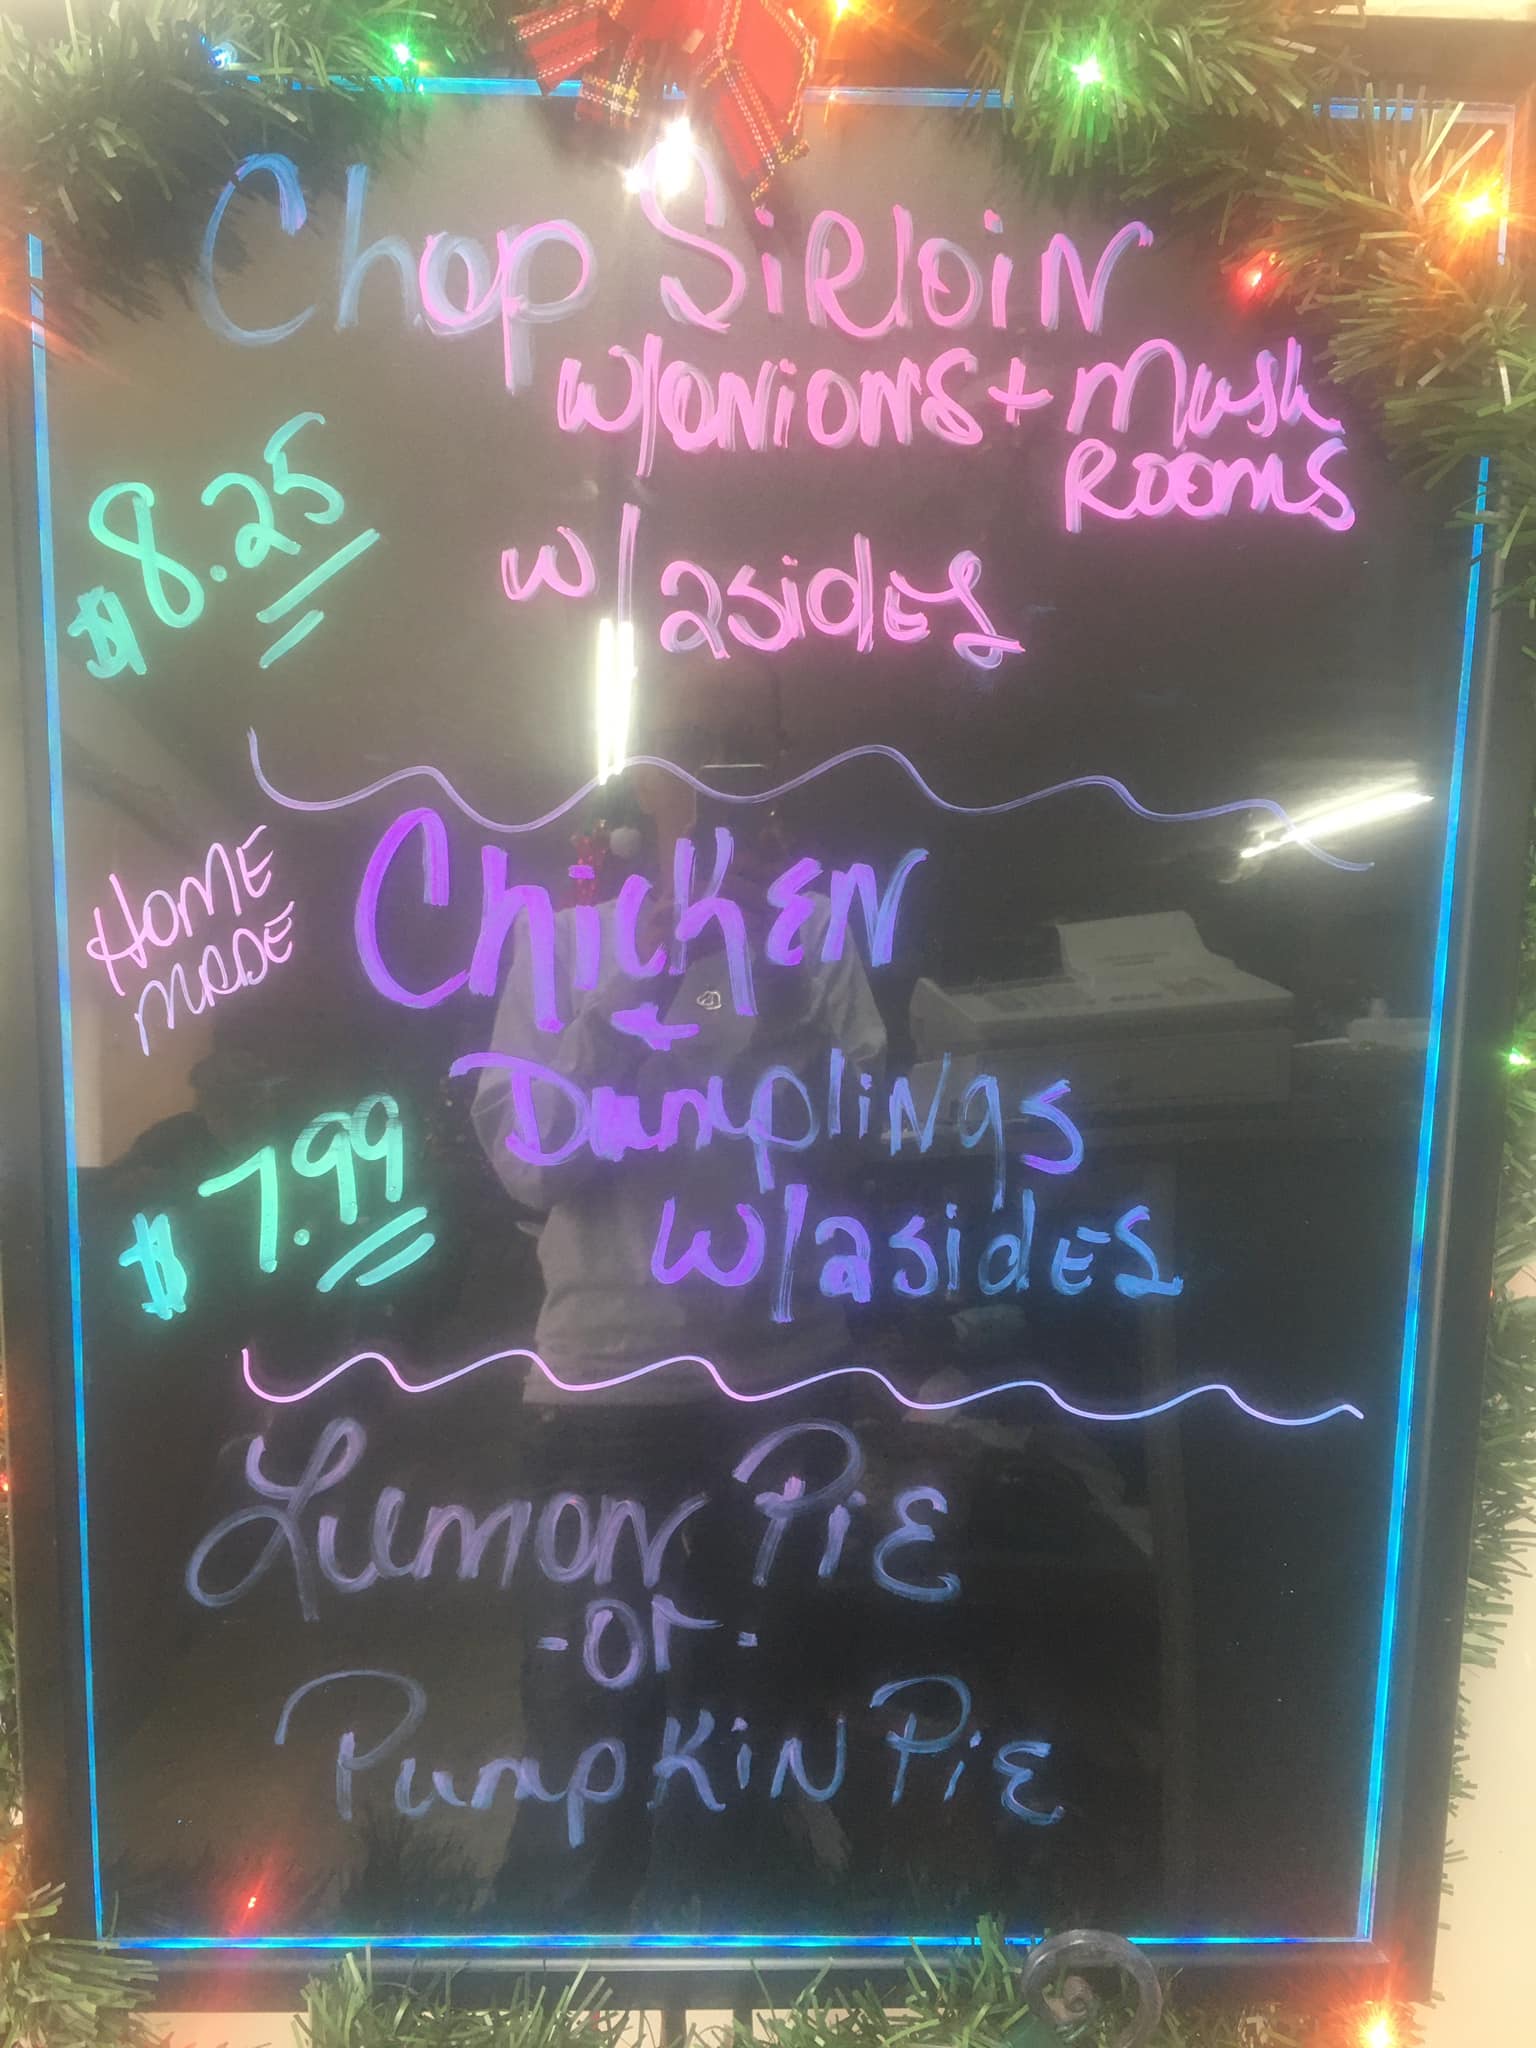 Chop SiRloin
w/onions + Mush
Rooms
$8.25
w/ 2sides
HOME
MADE
ChickEN
+
Dumplings
$7.99
w/2sides
Lemon PiE
-or-
PumpKin PiE